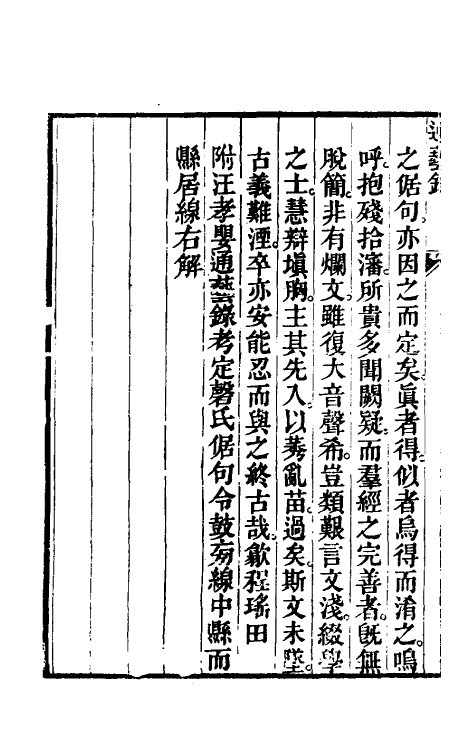 通藝錄
之倨句亦因之而定矣眞者得似者烏得而淆之嗚
呼抱殘拾瀋所貴多聞闕疑而羣經之完善者旣無
脫簡非有爛文雖復大音聲希豈類艱言文淺綴學
之士慧辯塡胸主其先入以莠亂苗過矣斯文未墜
古義難湮卒亦安能忍而與之終古哉歙程瑤田
附汪孝嬰通藝錄考定磬氏倨句令鼓旁線中縣而
縣居線右解